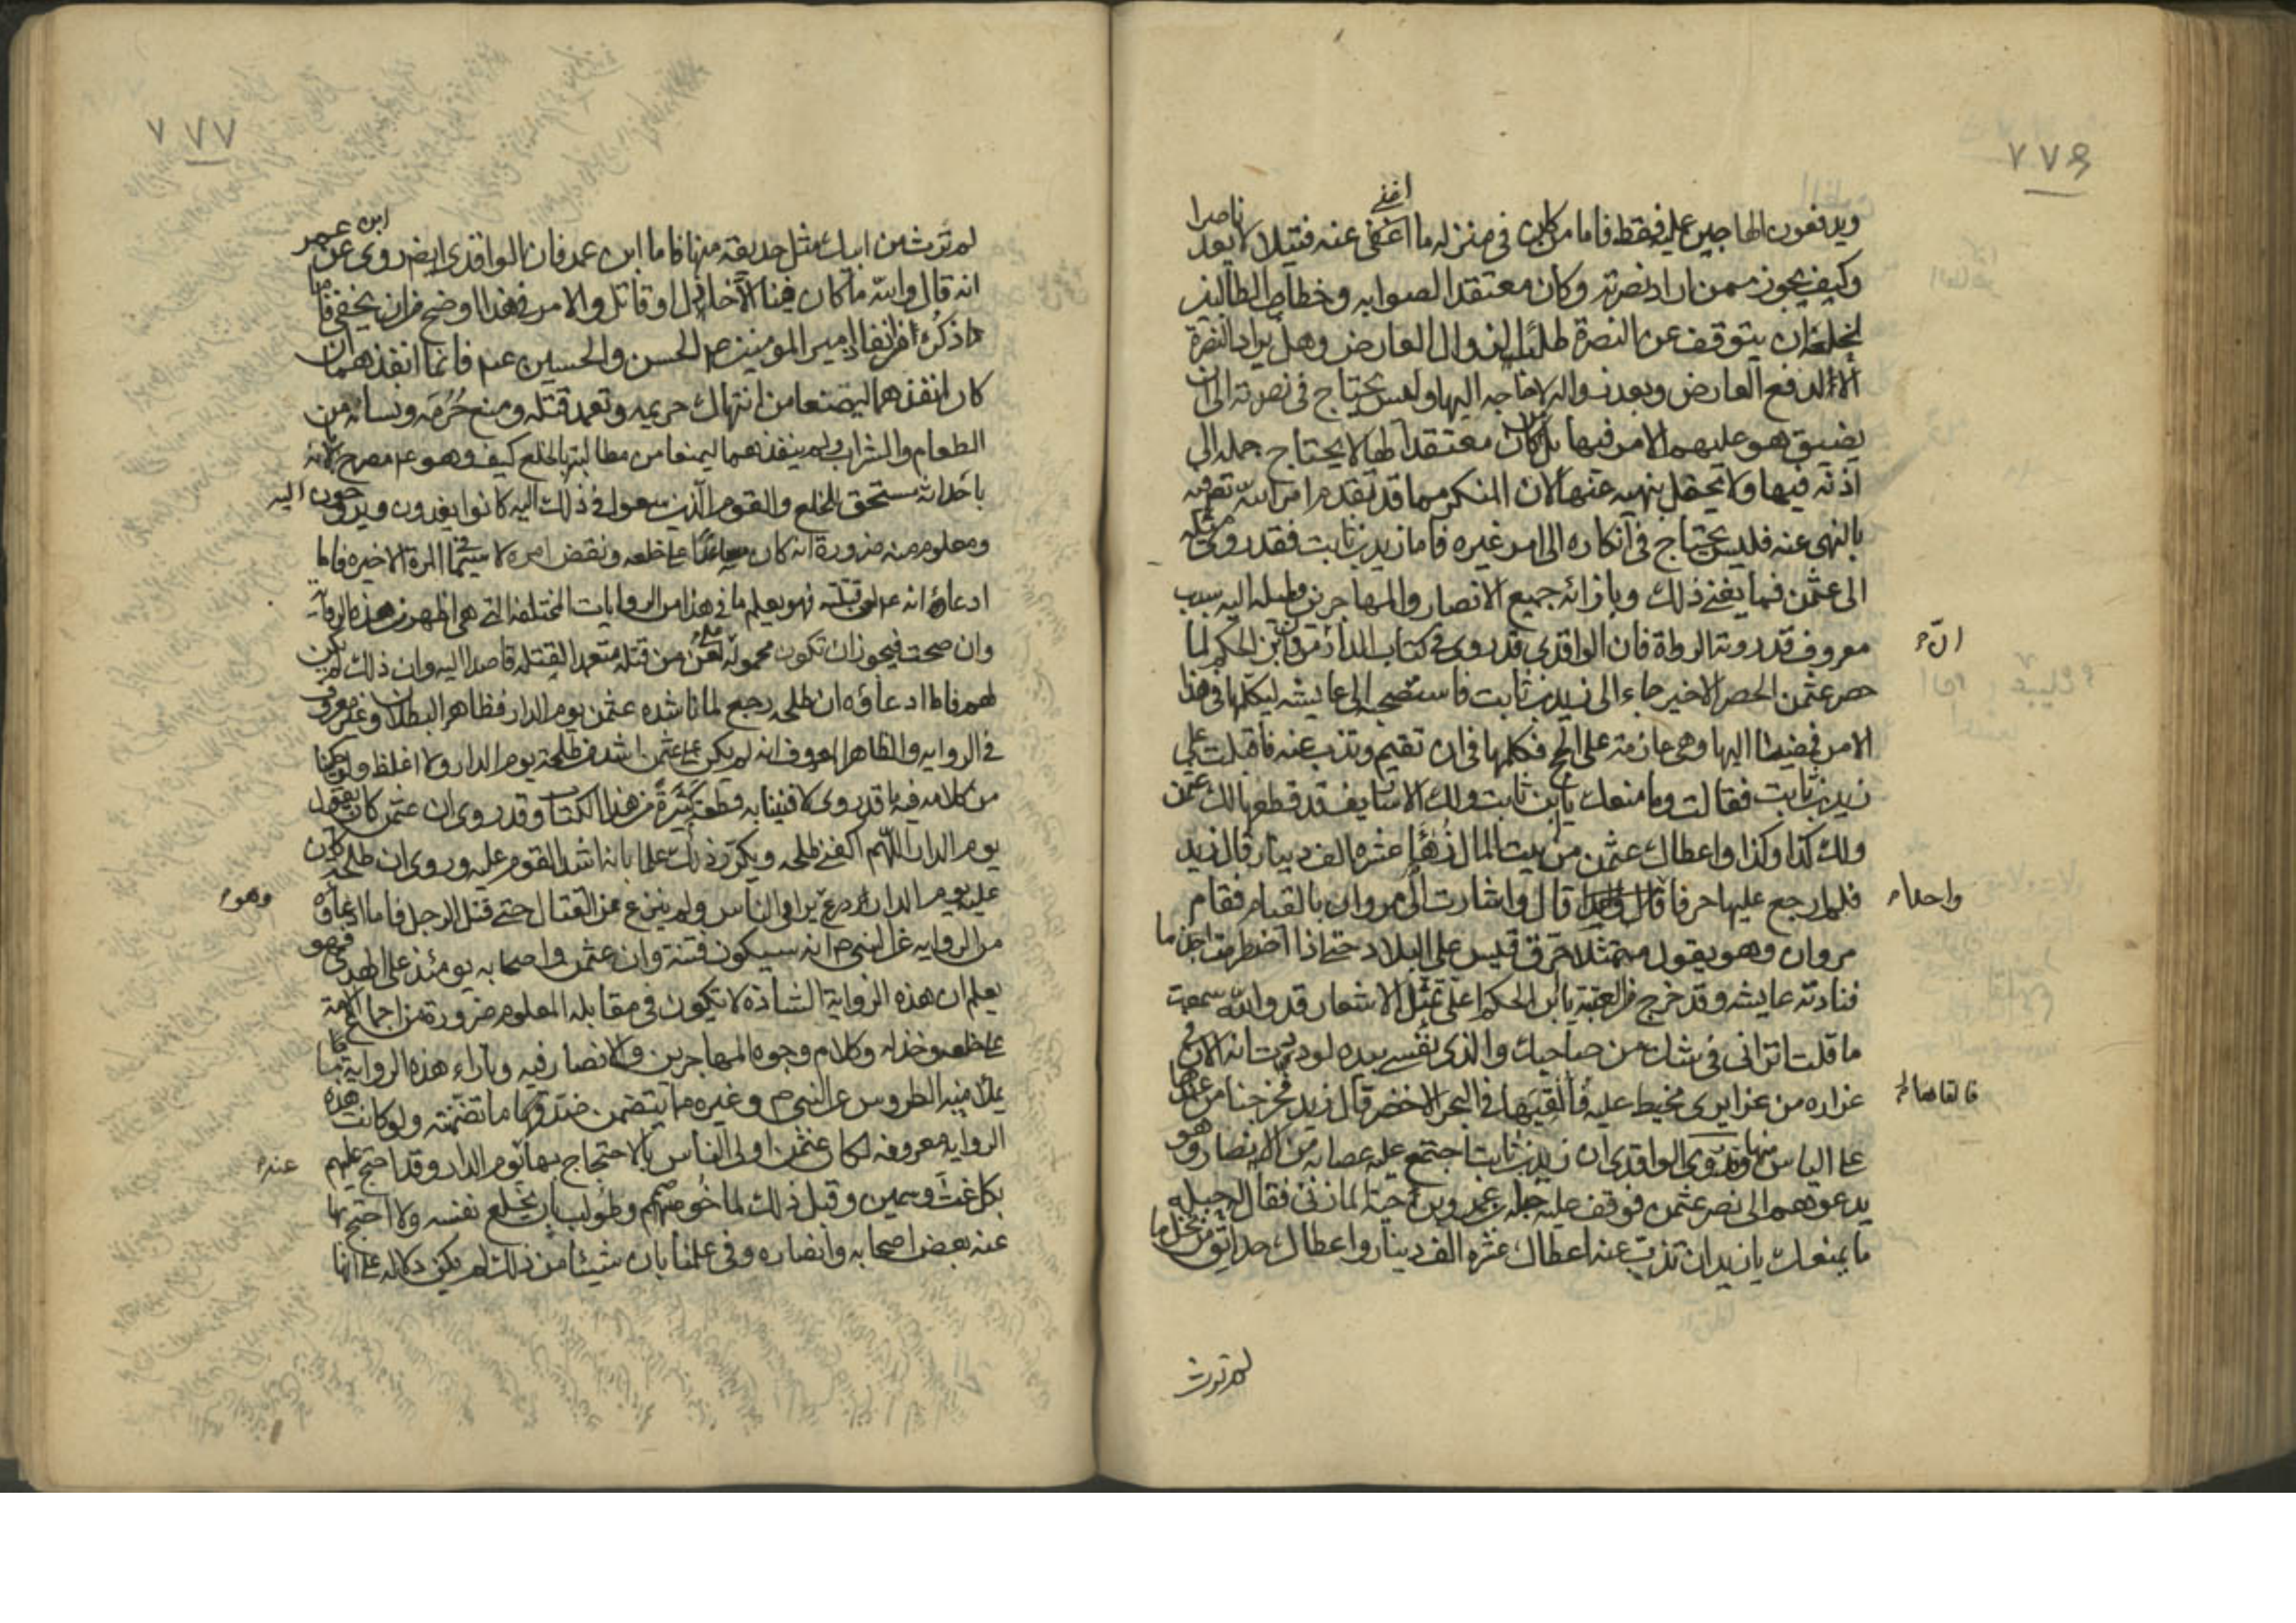 ٧٧٦
ويدفعون الهاجمين عليه فقط فاما من كان في منزله ما اغنى عنه فتيلا لا يعد ناصرا
اغنى
وكيف يجوز ممن اراد نصرته وكان معتقدا لصوابه وخطأ الطالبين
لخلعه ان يتوقف عن النصرة طلبا لزوال العارض وهل يراد النصرة
الا لدفع العارض وبعد زواله لا حاجه اليها وليس يحتاج في نصرته الى ان
يضيق هو عليهم الامر فيها بل من كان معتقدا لها لا يحتاج جمله الى
اذنه فيها ولا يحفل بنهيه عنها لان المنكر مما قد تقدم امر الله تعالى فيه
بالنهي عنه فليس يحتاج في انكاره الى امر غيره فاما زيد بن ثابت فقد روى ميله
الى عثمن فما يغني ذلك وبازائه جميع الانصار والمهاجرين ولميله اليه سبب
معروف قد روته الرواة فان الواقدي قد روى في كتاب الدار ان مروان بن الحكم لما
ان
حصر عثمن الحصر الاخير جاء الى زيد بن ثابت فاستصحبه الى عايشه ليكلمها في هذا
الامر فمضيا اليها وهي عازمة على الحج فكلمها في ان تقيم وتذب عنه فاقبلت على
زيد بن ثابت فقالت وما منعك يا ابن ثابت ولك الاساويف قد قطعها لك عثمن
ولك كذا وكذا واعطاك عثمن من بيت المال زهاء عشره الف دينار قال زيد
فلم ارجع عليها حرفا واحدا قال واشارت الى مروان بالقيام فقام
واحدا
مروان وهو يقول متمثلا حرق قيس علي البلاد حتى اذا اضطرمت اجذما
فنادته عايشه وقد خرج من العتبة يا ابن الحكم اعلي تمثل الاشعار قد والله سمعت
ما قلت اتراني في شك من صاحبك والذي نفسي بيده لوددت انه الان في
غراره من غرايري مخيط عليه فالقيها في البحر الاخضر قال زيد فخرجنا من عندها
فالقاها
على الياس منها وقد روى الواقدي ان زيد بن ثابت اجتمع عليه عصابه من الانصار وهو
يدعوهم الى نصر عثمن فوقف عليه جبلة بن عمرو بن حية المازني فقال له جبله
ما يمنعك يا زيد ان تذب عنه اعطاك عشره الف دينار واعطاك حدائق من نخل ما
لم ترث
٧٧٧
لم ترث من ابيك مثل حديقة منها فاما ابن عمر فان الواقدي ايضا روى عن ابن عمر
انه قال والله ما كان فينا الا خاذل او قاتل والامر في هذا اوضح من ان يخفى فاما
ما ذكره من انفاذ امير المومنين م الحسن والحسين عم فانما انفذهما ان
كان انفذهما ليمنعا من انتهاك حريمه وتعمد قتله ومنع حرمه ونسائه من
الطعام والشراب ولم ينفذهما ليمنعا من مطالبته بالخلع كيف وهو عم مصرح بانه
باحداثه مستحق للخلع والقوم الذين سعوا في ذلك اليه كانوا يغدون ويروحون اليه
ومعلوم منه ضرورة انه كان مساعدا على خلعه ونقض امره لا سيما في المرة الاخيره فاما
ادعاؤه انه عم لعن قتلته فهو يعلم ما في هذا من الروايات المختلفه التي هي اظهر من هذه الرواية
وان صحت فيجوز ان تكون محمولة على لعن من قتله متعمدا لقتله قاصدا اليه وان ذلك لم يكن
لهم فاما ادعاؤه ان طلحه رجع لما ناشده عثمن يوم الدار فظاهر البطلان وغير معروف
في الروايه والظاهر المعروف انه لم يكن على عثمن اشد من طلحة يوم الدار ولا اغلظ ولو ذكرنا
من كلامه فيه ما قد روي لافنينا به قطعة كثيرة من هذا الكتاب وقد روى ان عثمن كان يقول
يوم الدار اللهم اكفني طلحه ويكرر ذلك علما بانه اشد القوم عليه وروى ان طلحة كان
عليه يوم الدار درع يرامي الناس ولم ينزع عن القتال حتى قتل الرجل فاما ادعاؤه
وهو
من الروايه عن النبي م انه سيكون فتنة وان عثمن واصحابه يومئذ على الهدى فهو
يعلم ان هذه الرواية الشاذه لا تكون في مقابله المعلوم ضرورة من اجماع الامة
على خلعه وخذله وكلام وجوه المهاجرين والانصار فيه وبازاء هذه الرواية ما
يملأ منه الطروس عن النبي م وغيره مما يتضمن ضد ما تضمنته ولو كانت هذه
الروايه معروفه لكان عثمن اولى الناس بالاحتجاج بها يوم الدار وقد احتج عليهم
عنده
بكل غث وسمين وقبل ذلك لما خوصم وطولب بان يخلع نفسه ولا احتج بها
عنه بعض اصحابه وانصاره وفي علمنا بان شيئا من ذلك لم يكن دلاله على انها